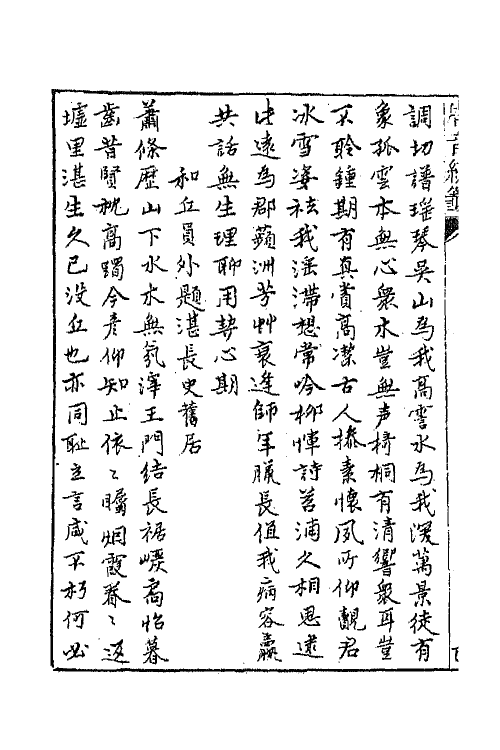 調切譜瑶琴吳山為我高霅水為我深萬景徒有
象孤雲本無心衆木豈無声椅桐有清響衆耳豈
不聆鍾期有真賞高潔古人操素懷夙所仰覿君
冰雪姿祛我滛滯想常吟柳惲詩苕浦久相思逮
此遠為郡蘋洲芳艸衰逢師年臘長值我病容羸
共話無生理聊用契心期
和丘員外題湛長史舊居
蕭條歷山下水木無氛滓王門結長裾巖扃怡暮
齒昔賢枕高躅今彦仰知止依〻矚烟霞眷〻返
墟里湛生久已没丘也亦同恥立言咸不朽何必